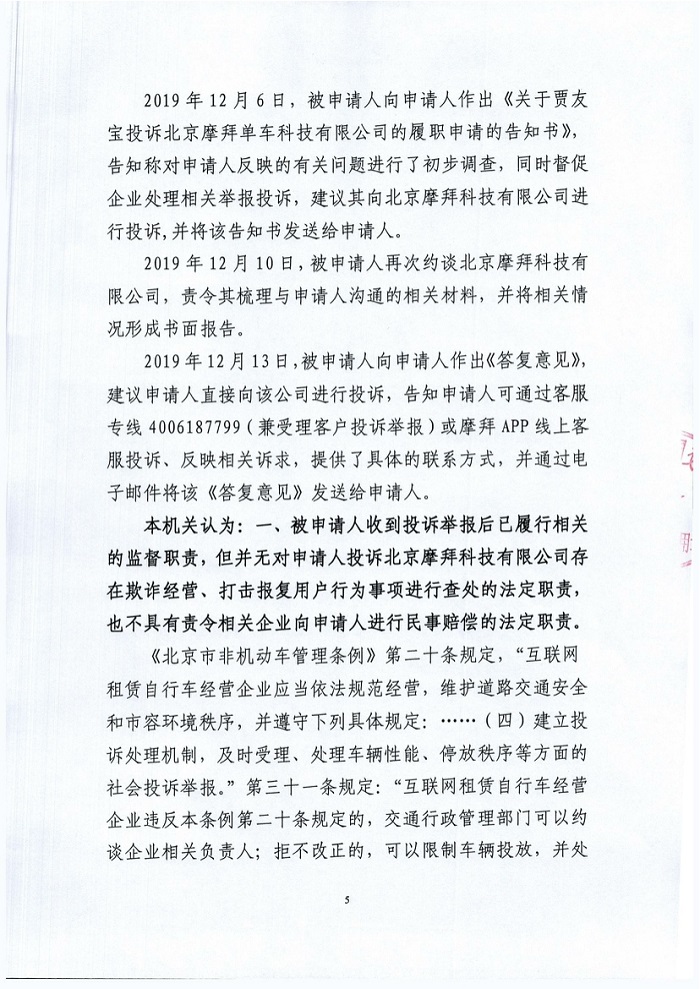 2019年12月6日，被申请人向申请人作出《关于贾友
宝投诉北京摩拜单车科技有限公司的履职申请的告知书》，
告知称对申请人反映的有关问题进行了初步调查，同时督促
企业处理相关举报投诉，建议其向北京摩拜科技有限公司进
行投诉,并将该告知书发送给申请人。
2019年12月10日,被申请人再次约谈北京摩拜科技有
限公司，责令其梳理与申请人沟通的相关材料，并将相关情
况形成书面报告。
2019年12月13日,被申请人向申请人作出《答复意见》，
建议申请人直接向该公司进行投诉，告知申请人可通过客服
专线4006187799（兼受理客户投诉举报）或摩拜APP线上客
服投诉、反映相关诉求，提供了具体的联系方式，并通过电
子邮件将该《答复意见》发送给申请人。
本机关认为：一、被申请人收到投诉举报后已履行相关
的监督职责，但并无对申请人投诉北京摩拜科技有限公司存
在欺诈经营、打击报复用户行为事项进行查处的法定职责，
也不具有责令相关企业向申请人进行民事赔偿的法定职责。
《北京市非机动车管理条例》第二十条规定，“互联网
租赁自行车经营企业应当依法规范经营，维护道路交通安全
和市容环境秩序，并遵守下列具体规定：……（四）建立投
诉处理机制，及时受理、处理车辆性能、停放秩序等方面的
社会投诉举报。”第三十一条规定：“互联网租赁自行车经营
企业违反本条例第二十条规定的，交通行政管理部门可以约
谈企业相关负责人；拒不改正的，可以限制车辆投放，并处
5